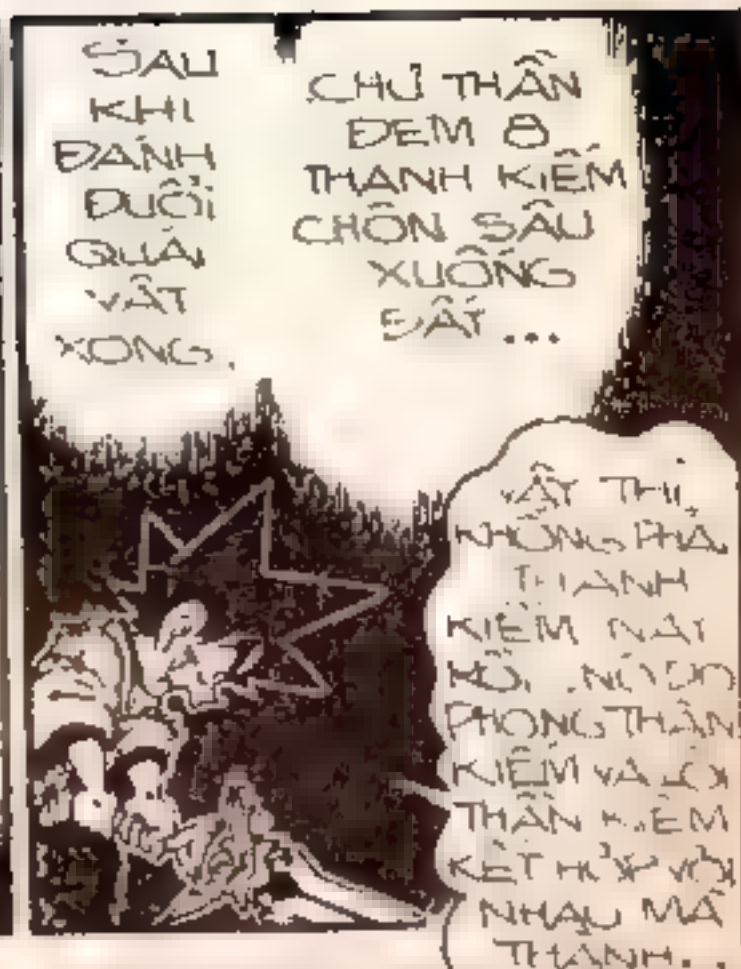 SAU
KHI
ĐÁNH
ĐUỔI
QUÁI
VẬT
XONG,
CHƯ THẦN
ĐEM 8
THANH KIẾM
CHÔN SÂU
XUỐNG
ĐẤT ...
VẬY THÌ,
KHÔNG PHẢI
THANH
KIẾM NÀY
RỒI, NÓ DO
PHONG THẦN
KIẾM VÀ LÔI
THẦN KIẾM
KẾT HỢP VỚI
NHAU MÀ
THÀNH..